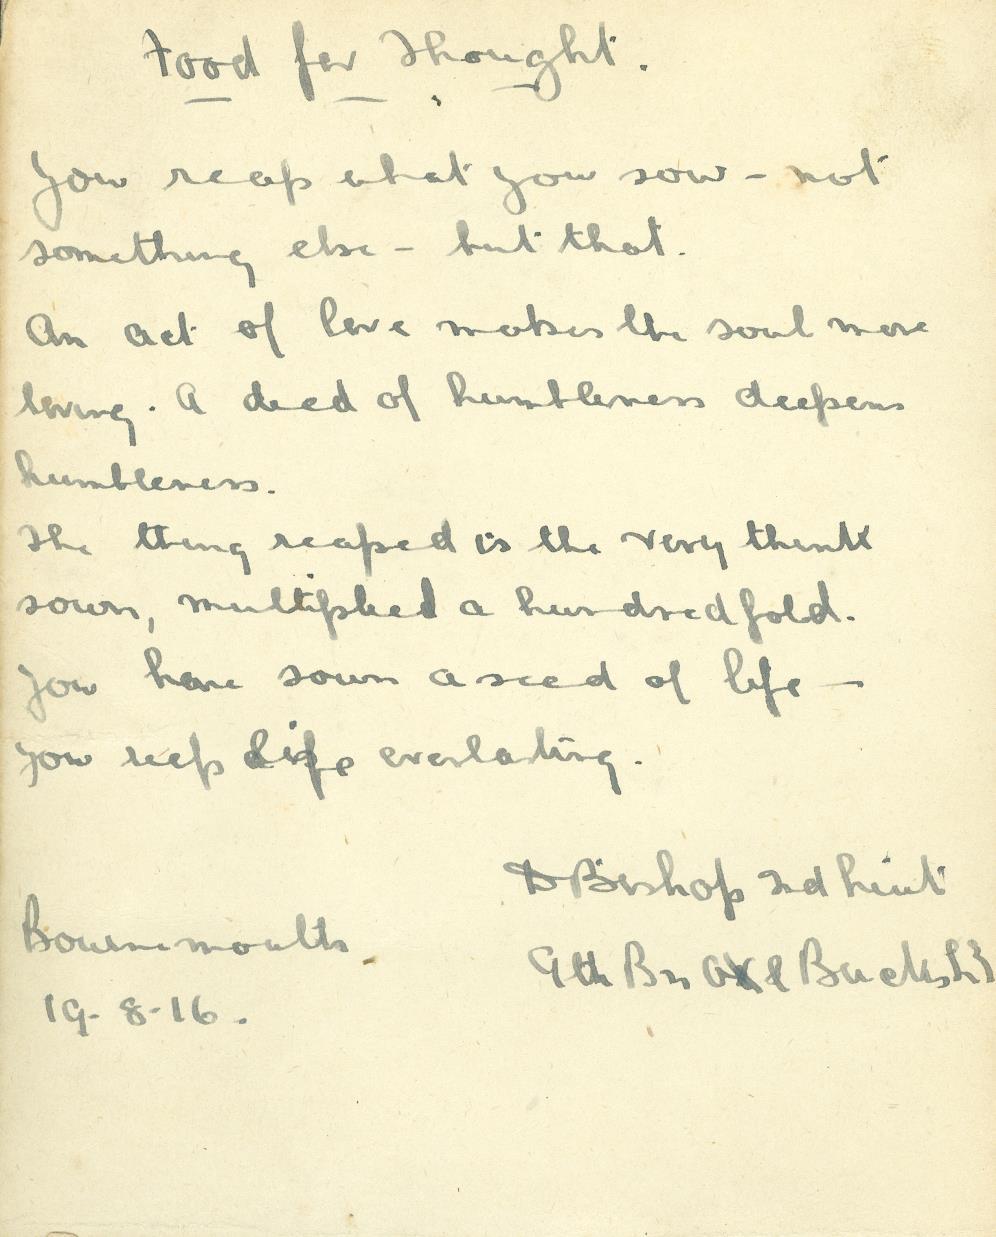 Food for Thought.
You reap what you sow - not
something else - but that.
An act of love makes the soul more
loving. A deed of humbleness deepens
humbleness.
The thing reaped is the very think
sown, multiplied a hundredfold.
You have sown a seed of life -
you reap life everlasting.
D Bishop 2nd Lieut
Bournemouth
9th Bn Ox & Bucks L.I
19-8-16.